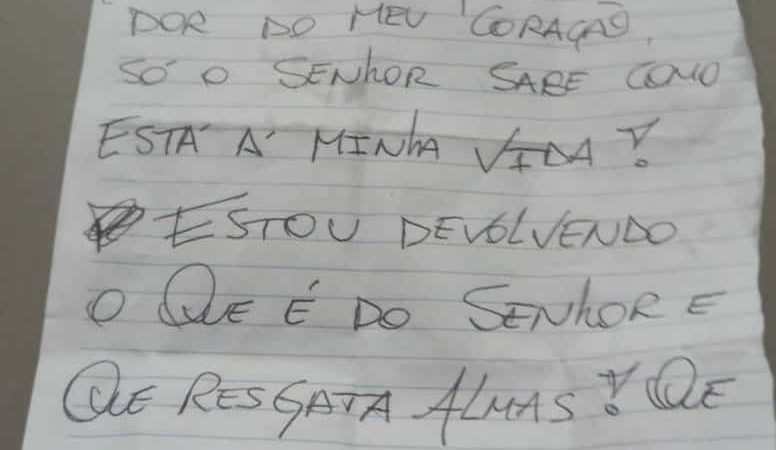 DOR DO MEU CORAÇÃO.
SÓ O SENHOR SABE COMO
ESTÁ Á MINHA VIDA!
ESTOU DEVOLVENDO
O QUE É DO SENHOR E
QUE RESGATA ALMAS! QUE